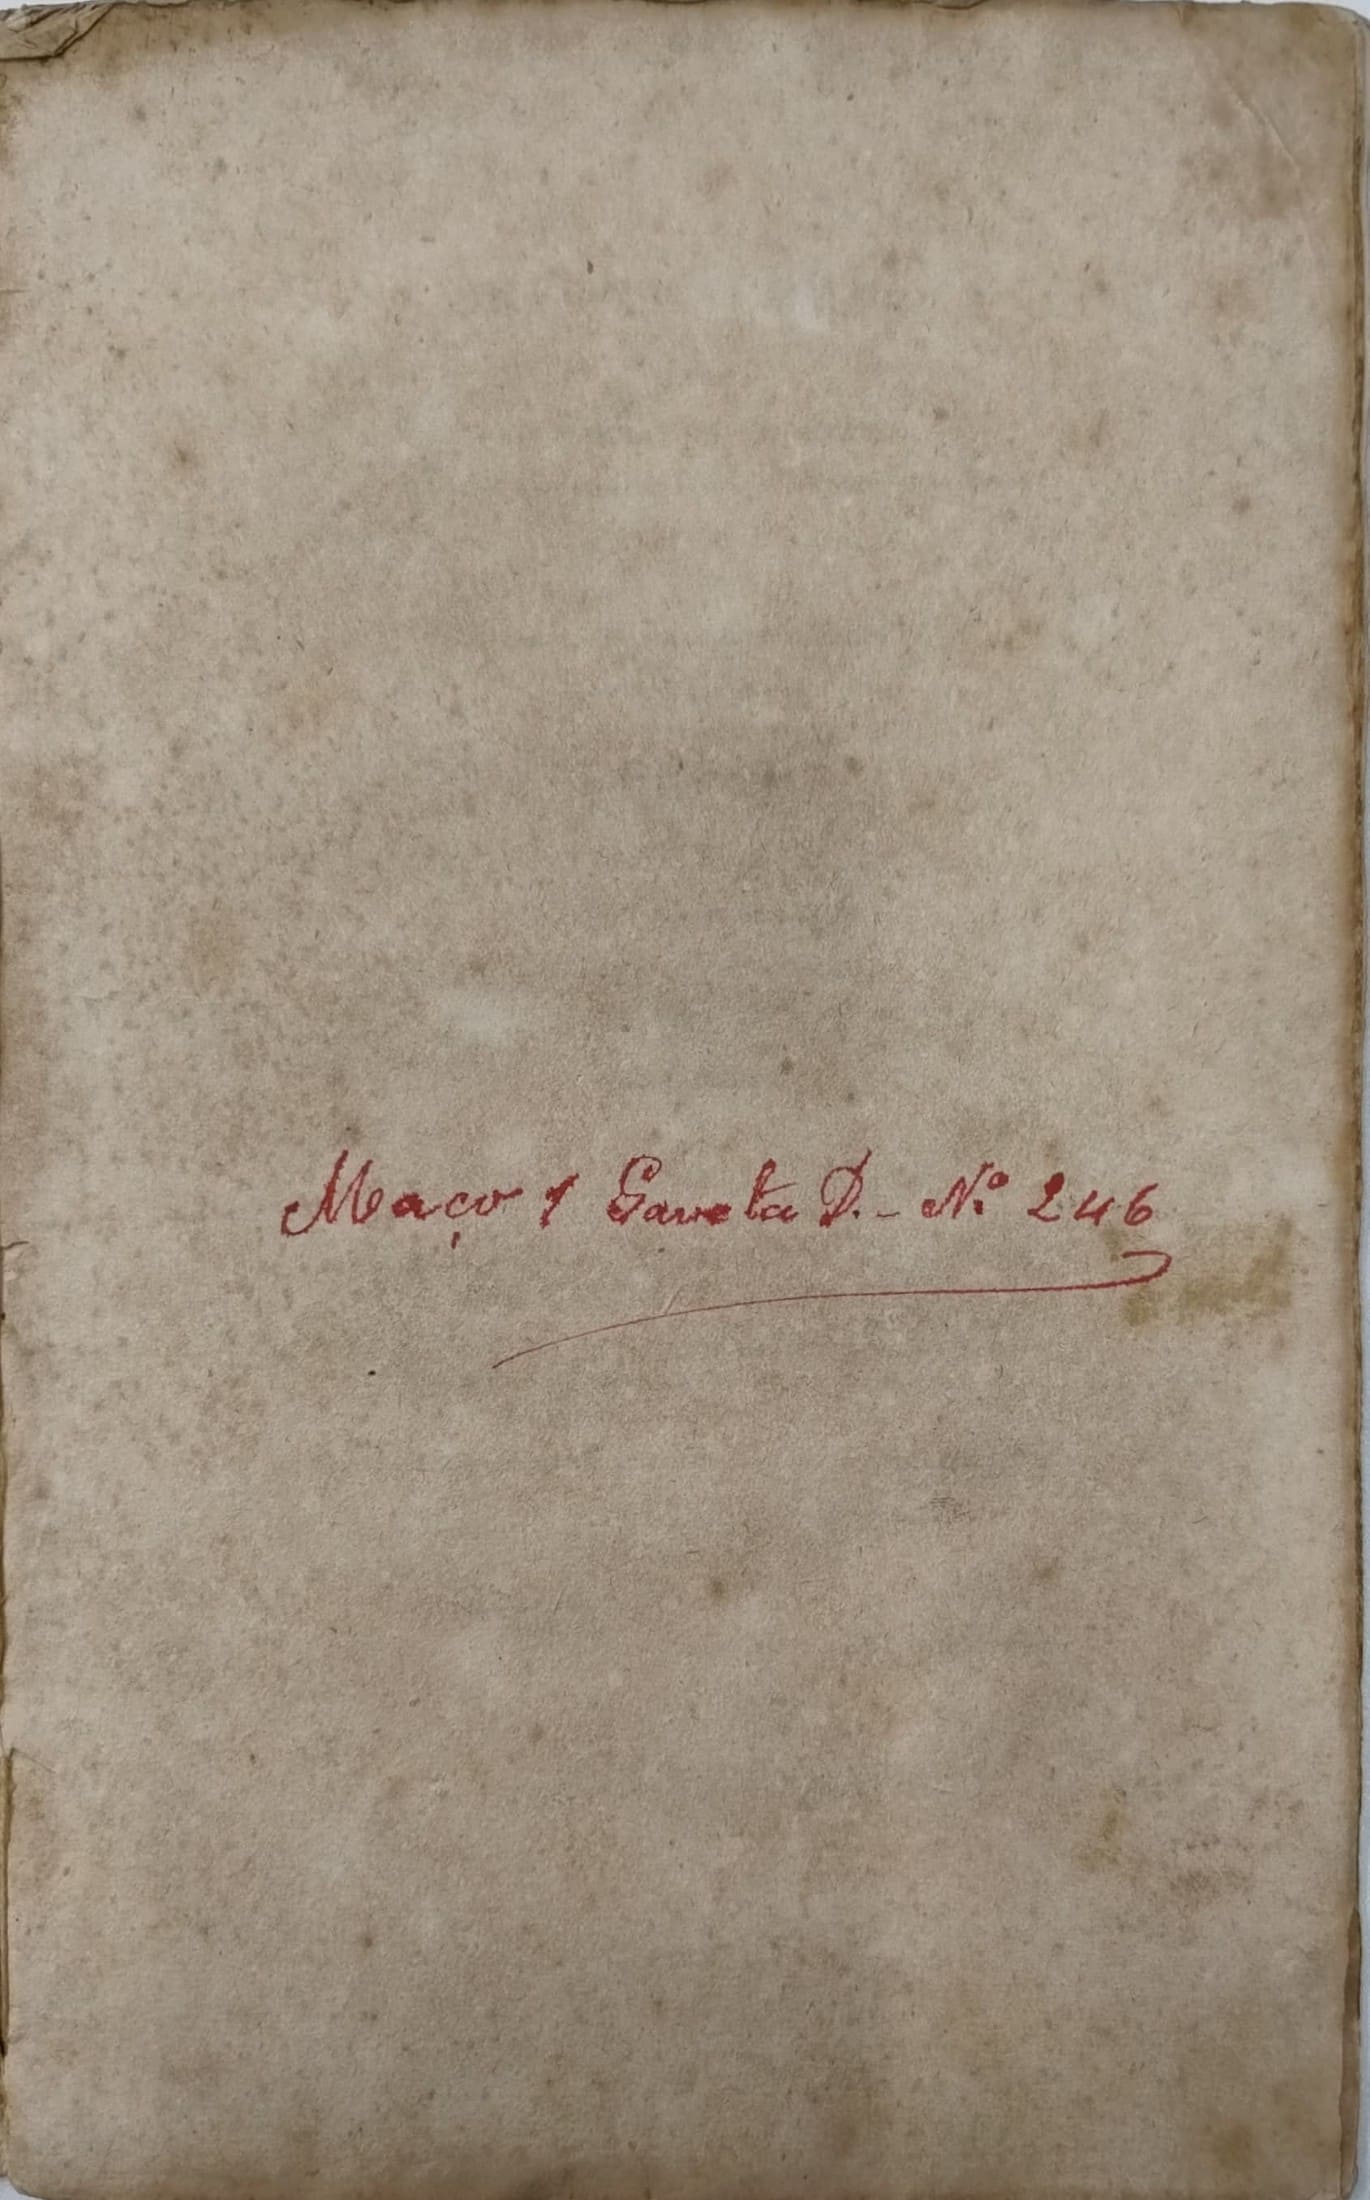 Maço 1 Gaveta D. - Nº 246